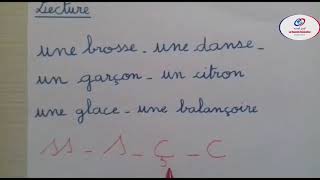 Lecture
une brosse - une danse -
un garçon - un citron
une glace - une balançoire
ss - s - ç - c